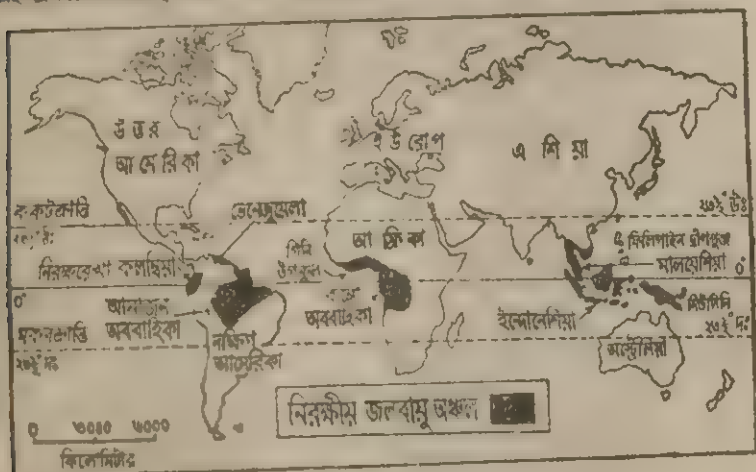 উত্তর
আমেরিকা
ইউরোপ
এশিয়া
কর্কটক্রান্তি
২৩½° উঃ
ভেনেজুয়েলা
২৩½° উঃ
গিনি
উপকূল
আফ্রিকা
ফিলিপাইন দ্বীপপুঞ্জ
মালয়েশিয়া
নিরক্ষরেখা
কলম্বিয়া
0°
0°
আমাজন
অববাহিকা
অববাহিকা
ইন্দোনেশিয়া
নিউগিনি
মকরক্রান্তি
২৩½° দঃ
২৩½° দঃ
দক্ষিণ
আমেরিকা
অস্ট্রেলিয়া
নিরক্ষীয় জলবায়ু অঞ্চল
0
কিলোমিটার